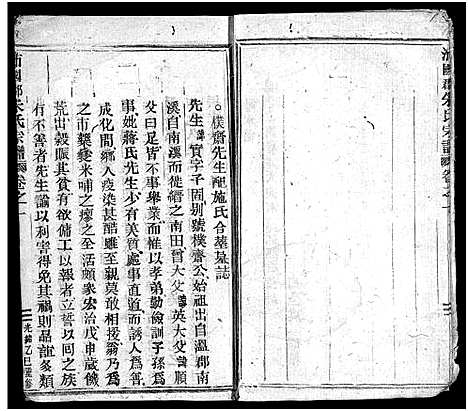 沛國郡朱氏宗譜卷之一
○樸齋先生配施氏合葬墓誌
先生諱實字子固别號樸齋公始祖出自溫郡南
溪自南溪而徙縉之南田曾大父諱英大父諱順
父曰足皆不事舉業而惟以孝弟勤儉訓子孫爲
事她蔣氏先生少有美質處事直道而誘人爲善
成化間鄉人疫染甚酷雖至親莫敢相援翁乃爲
之市藥煑米哺之瘳之全活頗衆宏治戊申歲饑
荒出榖賑其貧有欲傭工以報者立誓以回之族
有不善者先生諭以利害得免其禍則品誼多類
沛國郡朱氏宗譜卷之一
光緒乙巳重修